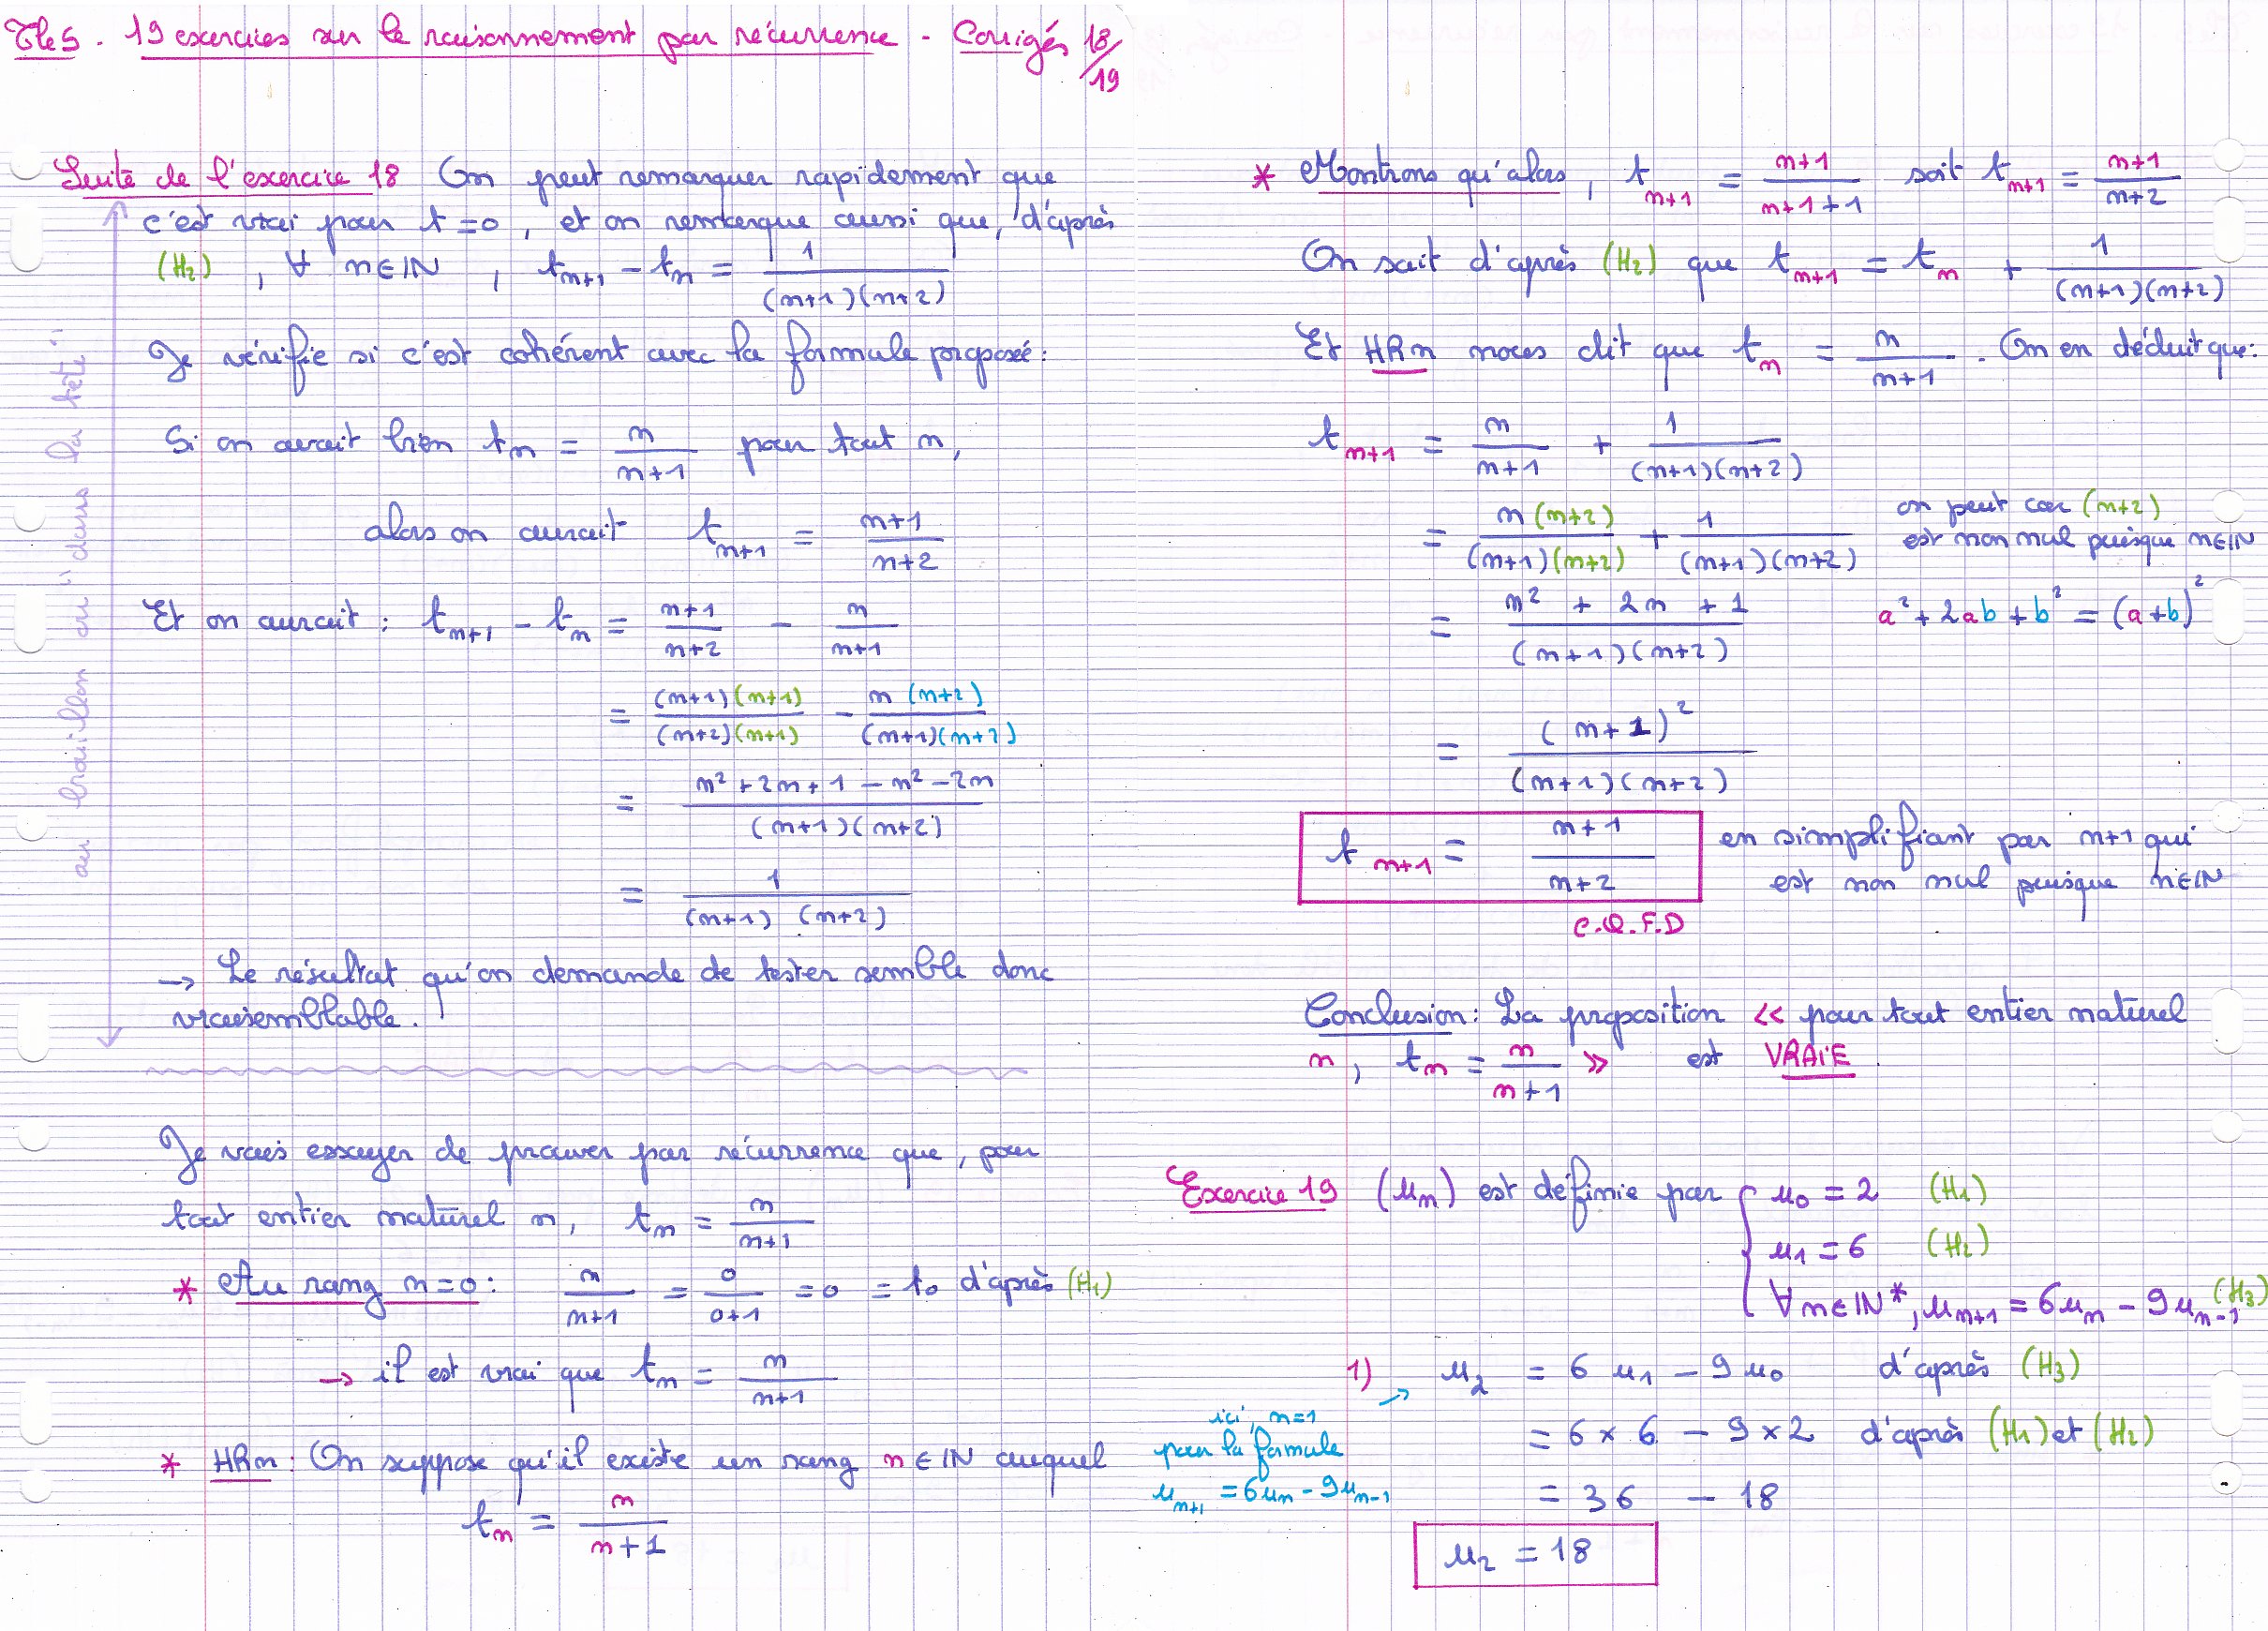 TleS. 19 exercices sur le raisonnement par récurrence - Corrigés 18/19
Suite de l'exercice 18 On peut remarquer rapidement que
c'est vrai pour t=0, et on remarque aussi que, d'après
(H₂), ∀ n∈ℕ, tₙ₊₁ - tₙ = 1/((n+1)(n+2))
Je vérifie si c'est cohérent avec la formule proposée:
Si on avait bien tₙ = n/(n+1) pour tout n,
alors on aurait tₙ₊₁ = (n+1)/(n+2)
Et on aurait : tₙ₊₁ - tₙ = (n+1)/(n+2) - n/(n+1)
= ((n+1)(n+1))/((n+2)(n+1)) - (n(n+2))/((n+1)(n+2))
= (n²+2n+1-n²-2n)/((n+1)(n+2))
= 1/((n+1)(n+2))
→ Le résultat qu'on demande de tester semble donc
vraisemblable.
au brouillon ou "dans la tête"
Je vais essayer de prouver par récurrence que, pour
tout entier naturel n, tₙ = n/(n+1)
* Au rang n=0: n/(n+1) = 0/(0+1) = 0 = t₀ d'après (H₁)
→ il est vrai que tₙ = n/(n+1)
* HRn: On suppose qu'il existe un rang n∈ℕ auquel
tₙ = n/(n+1)
* Montrons qu'alors, tₙ₊₁ = (n+1)/(n+1+1) soit tₙ₊₁ = (n+1)/(n+2)
On sait d'après (H₂) que tₙ₊₁ = tₙ + 1/((n+1)(n+2))
Et HRn nous dit que tₙ = n/(n+1). On en déduit que:
tₙ₊₁ = n/(n+1) + 1/((n+1)(n+2))
= (n(n+2))/((n+1)(n+2)) + 1/((n+1)(n+2)) on peut car (n+2)
est non nul puisque n∈ℕ
= (n² + 2n + 1)/((n+1)(n+2)) a²+2ab+b² = (a+b)²
= (n+1)²/((n+1)(n+2))
tₙ₊₁ = (n+1)/(n+2) en simplifiant par n+1 qui
est non nul puisque n∈ℕ
C.Q.F.D
Conclusion: La proposition << pour tout entier naturel
n, tₙ = n/(n+1) >> est VRAIE
Exercice 19 (uₙ) est définie par { u₀ = 2 (H₁)
u₁ = 6 (H₂)
∀n∈ℕ*, uₙ₊₁ = 6uₙ - 9uₙ₋₁ (H₃)
1) u₂ = 6 u₁ - 9 u₀ d'après (H₃)
ici, n=1
pour la formule
uₙ₊₁ = 6uₙ - 9uₙ₋₁
= 6 × 6 - 9 × 2 d'après (H₁) et (H₂)
= 36 - 18
u₂ = 18